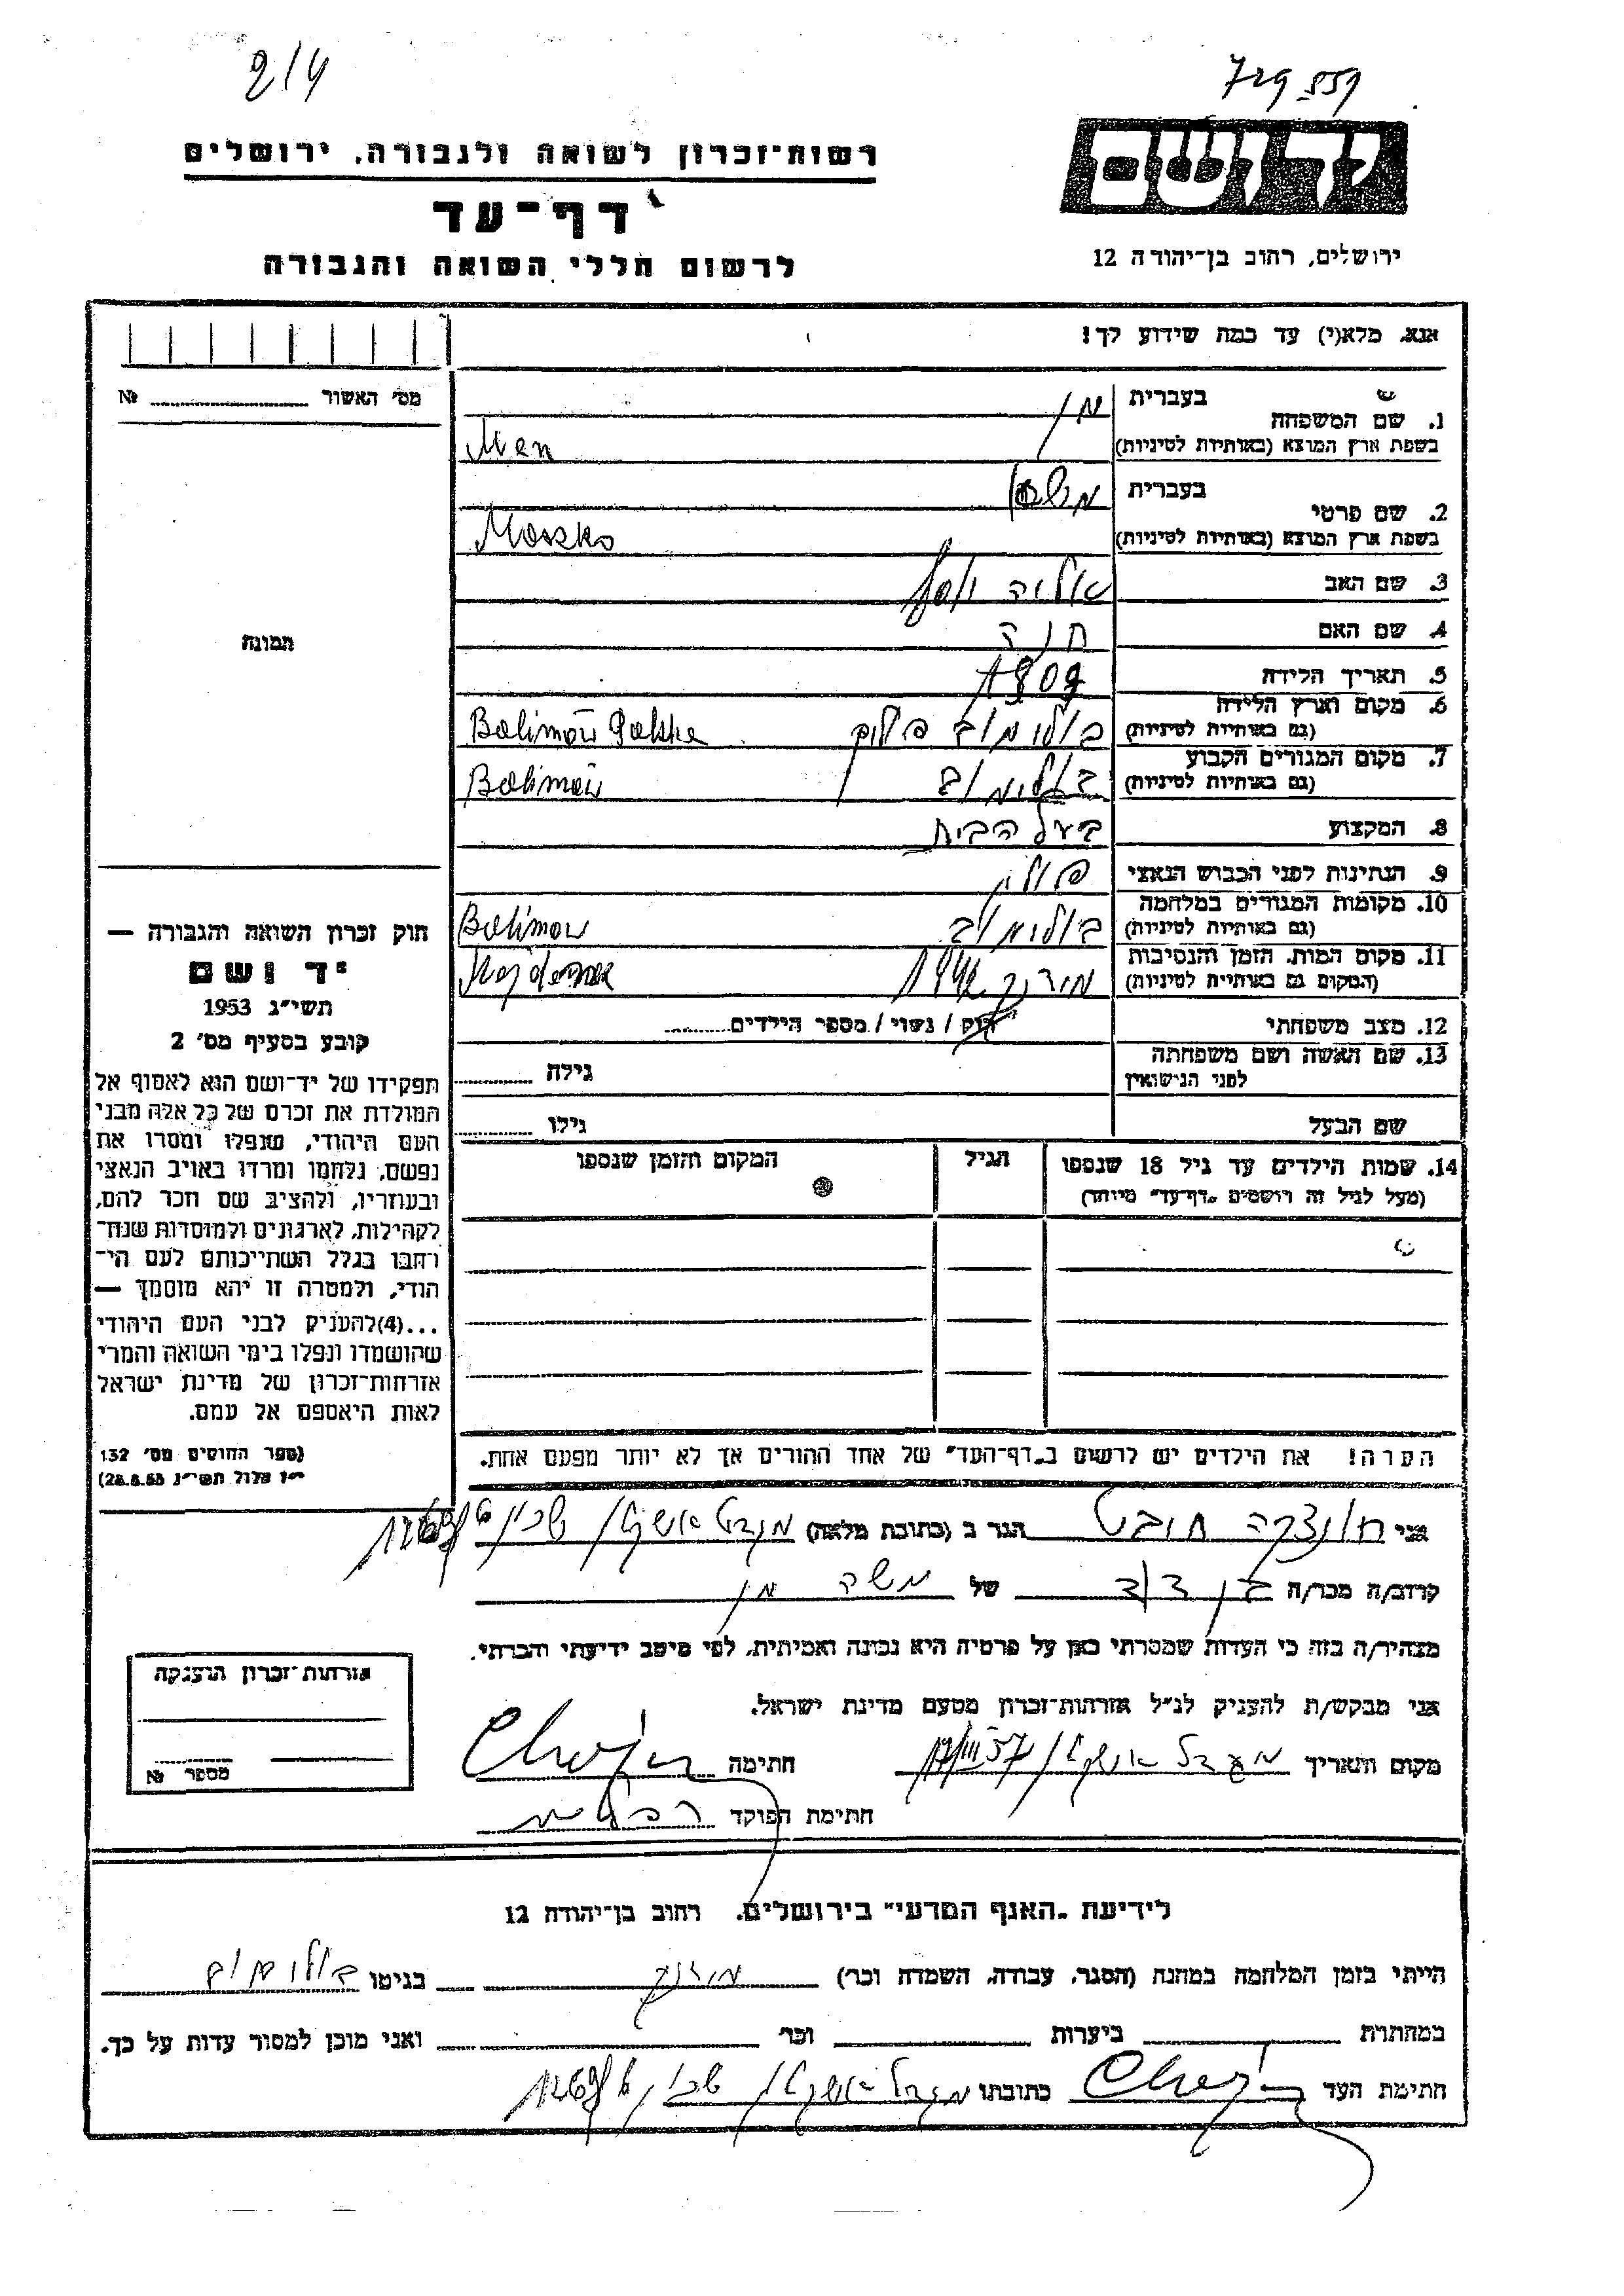 2/4
729 559
יד ושם
רשות־זכרון לשואה ולגבורה, ירושלים
דף־עד
לרשום חללי השואה והגבורה
ירושלים, רחוב בן־יהודה 12
אנא, מלא(י) עד כמה שידוע לך!
מס׳ האשור № 
1. שם המשפחה
בעברית מן
בשפת ארץ המוצא (באותיות לטיניות) Men
2. שם פרטי
בעברית
בשפת ארץ המוצא (באותיות לטיניות) Moszko
3. שם האב אליה
4. שם האם חנה
5. תאריך הלידה
6. מקום וארץ הלידה
(גם באותיות לטיניות) בולימוב פולין Bolimów Polska
7. מקום המגורים הקבוע
(גם באותיות לטיניות) בולימוב Bolimów
8. המקצוע בעל הבית
9. הנתינות לפני הכבוש הנאצי פולין
10. מקומות המגורים במלחמה
(גם באותיות לטיניות) בולימוב Bolimow
11. מקום המות, הזמן והנסיבות
(המקום גם באותיות לטיניות) מידנק 1942 Majdanek
12. מצב משפחתי רווק / נשוי / מספר הילדים
13. שם האשה ושם משפחתה
לפני הנישואין גילה
שם הבעל גילו
14. שמות הילדים עד גיל 18 שנספו
(מעל לגיל זה רושמים „דף־עד״ מיוחד)
הגיל
המקום והזמן שנספו
הערה! את הילדים יש לרשום ב„דף־העד״ של אחד ההורים אך לא יותר מפעם אחת.
תמונה
חוק זכרון השואה והגבורה —
יד ושם
תשי״ג 1953
קובע בסעיף מס׳ 2
תפקידו של יד־ושם הוא לאסוף אל
המולדת את זכרם של כל אלה מבני
העם היהודי, שנפלו ומסרו את
נפשם, נלחמו ומרדו באויב הנאצי
ובעוזריו, ולהציב שם וזכר להם,
לקהילות, לארגונים ולמוסדות שנח־
רחבו בגלל השתייכותם לעם הי־
הודי, ולמטרה זו יהא מוסמך —
...(4) להעניק לבני העם היהודי
שהושמדו ונפלו בימי השואה והמרי
אזרחות־זכרון של מדינת ישראל
לאות היאספם אל עמם.
(ספר החוקים מס׳ 132
י״ז אלול תשי״ג 28.8.53)
אני הגר ב (כתובת מלאה) מגדל אשקלון שכון
קרוב/ה מכר/ה בן דוד של משה מן
מצהיר/ה בזה כי העדות שמסרתי כאן על פרטיה היא נכונה ואמיתית, לפי מיטב ידיעתי והכרתי.
אני מבקש/ת להעניק לנ״ל אזרחות־זכרון מטעם מדינת ישראל.
מקום ותאריך מגדל אשקלון 17/III 57 חתימה
חתימת הפוקד
אזרחות־זכרון הוענקה
מספר №
לידיעת „האגף המדעי״ בירושלים, רחוב בן־יהודה 12
הייתי בזמן המלחמה במחנה (הסגר, עבודה, השמדה וכר) מידנק בגיטו בולימוב
במחתרת ביערות וכר ואני מוכן למסור עדות על כך.
חתימת העד כתובתו מגדל אשקלון שכון